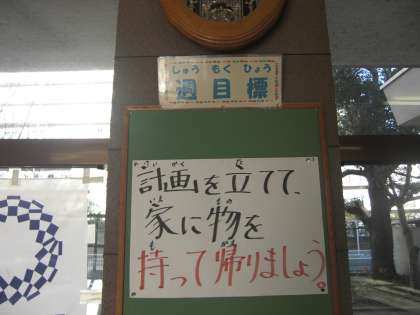 しゅう もく ひょう
週目標
けいかく た
計画を立てて、
いえ もの
家に物を
も かえ
持って帰りましょう。